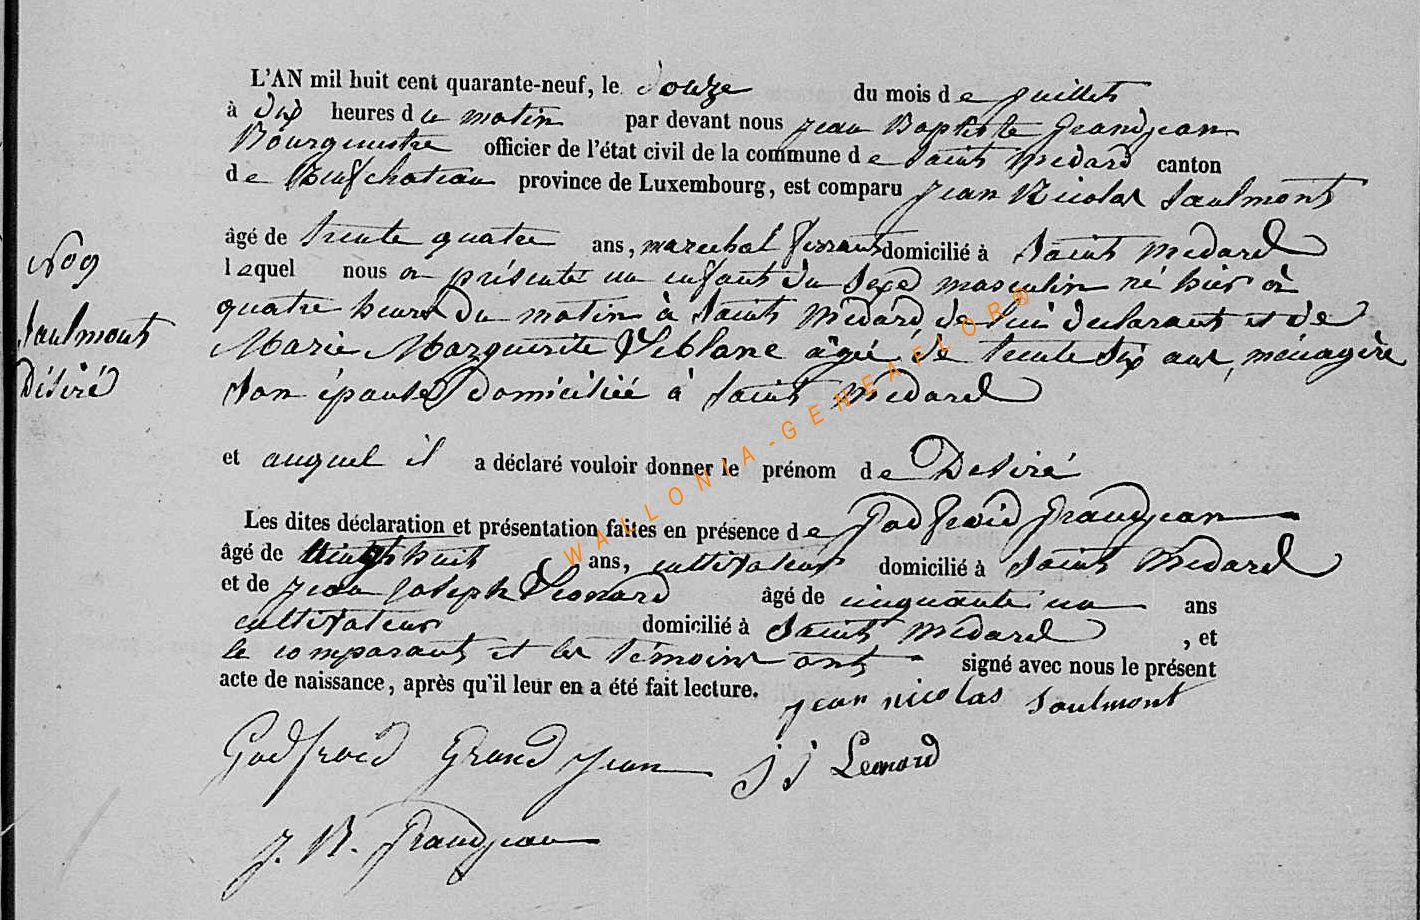 L'AN mil huit cent quarante-neuf, le douze du mois de juillet
à dix heures du matin par devant nous jean Baptiste Grandjean
Bourgmestre officier de l'état civil de la commune de Saint Médard canton
de Neufchateau province de Luxembourg, est comparu jean Nicolas Saulmont
âgé de trente quatre ans, marechal ferrant domicilié à Saint Médard
lequel nous a présenté un enfant du sexe masculin né hier à
quatre heures du matin à Saint Médard de lui declarant et de
Marie Marguerite Leblanc âgée de trente six ans, ménagère
son épouse domiciliée à Saint Médard
et auquel il a déclaré vouloir donner le prénom de Désiré
Les dites déclaration et présentation faites en présence de Godfroid Grandjean
âgé de vingt huit ans, cultivateur domicilié à Saint Médard
et de jean joseph Léonard âgé de cinquante un ans
cultivateur domicilié à Saint Médard , et
le comparant et les témoins ont signé avec nous le présent
acte de naissance, après qu'il leur en a été fait lecture.
jean nicolas Saulmont
Godfroid Grand jean j j Leonard
J. B. Grandjean
No 9
Saulmont
Désiré
WALLONIA-GENEAFLOR®